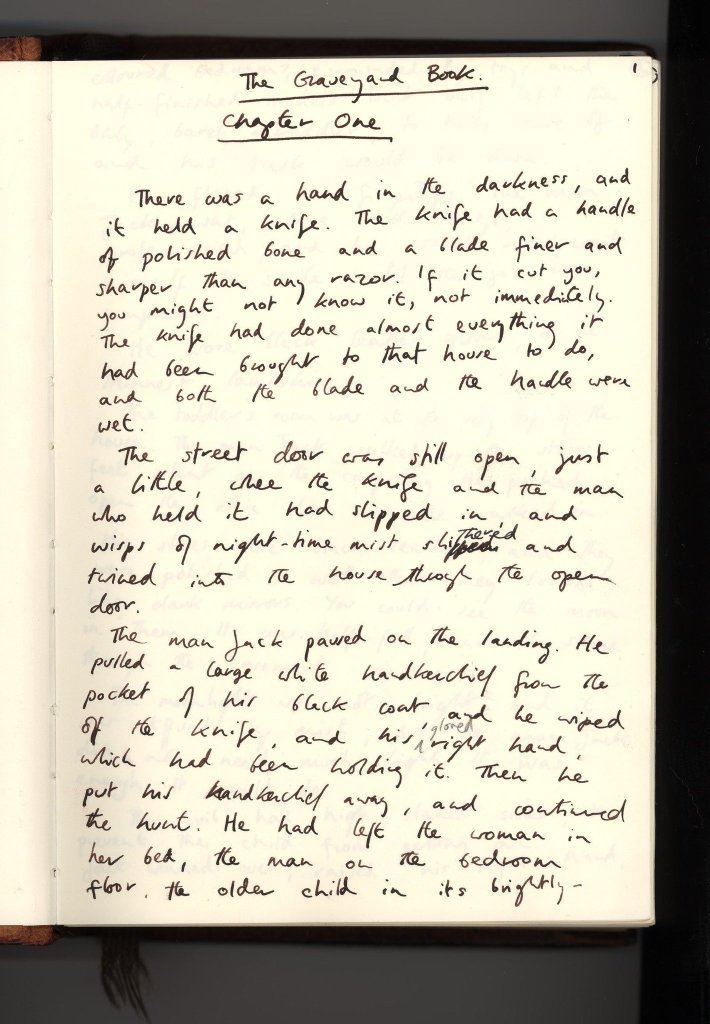 1
The Graveyard Book.
Chapter One
There was a hand in the darkness, and
it held a knife. The knife had a handle
of polished bone and a blade finer and
sharper than any razor. If it cut you,
you might not know it, not immediately.
The knife had done almost everything it
had been brought to that house to do,
and both the blade and the handle were
wet.
The street door was still open, just
a little, where the knife and the man
who held it had slipped in and
wisps of night-time mist slithered and
twined into the house through the open
door.
The man Jack paused on the landing. He
pulled a large white handkerchief from the
pocket of his black coat, and he wiped
of the knife, and his gloved right hand,
which had been holding it. Then he
put his handkerchief away, and continued
the hunt. He had left the woman in
her bed, the man on the bedroom
floor, the older child in its brightly-